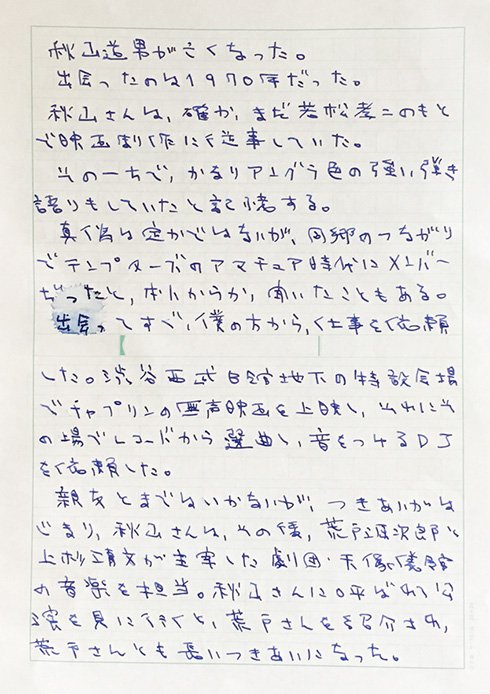 秋山道男が亡くなった。
出会ったのは1970年だった。
秋山さんは、確か、まだ若松孝二のもと
で映画制作に従事していた。
その一方で、かなりアングラ色の強い弾き
語りもしていたと記憶する。
真偽は定かではないが、同郷のつながり
でテンプターズのアマチュア時代にメンバー
だったと、本人からか、聞いたこともある。
出会ってすぐ、僕の方から、仕事を依頼
した。渋谷西武B館地下の特設会場
でチャップリンの無声映画を上映し、それにそ
の場でレコードから選曲し、音をつけるDJ
を依頼した。
親友とまではいかないが、つきあいがは
じまり、秋山さんは、その後、荒戸源次郎と
上杉清文が主宰した劇団・天象儀館
の音楽を担当。秋山さんに呼ばれて公
演を見に行くと、荒戸さんを紹介され、
荒戸さんとも長いつきあいになった。